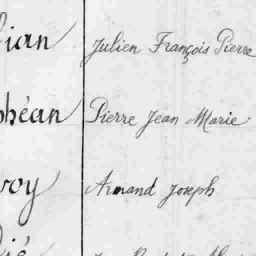 fian Julien François Pierre
phéan Pierre Jean Marie
voy Armand Joseph